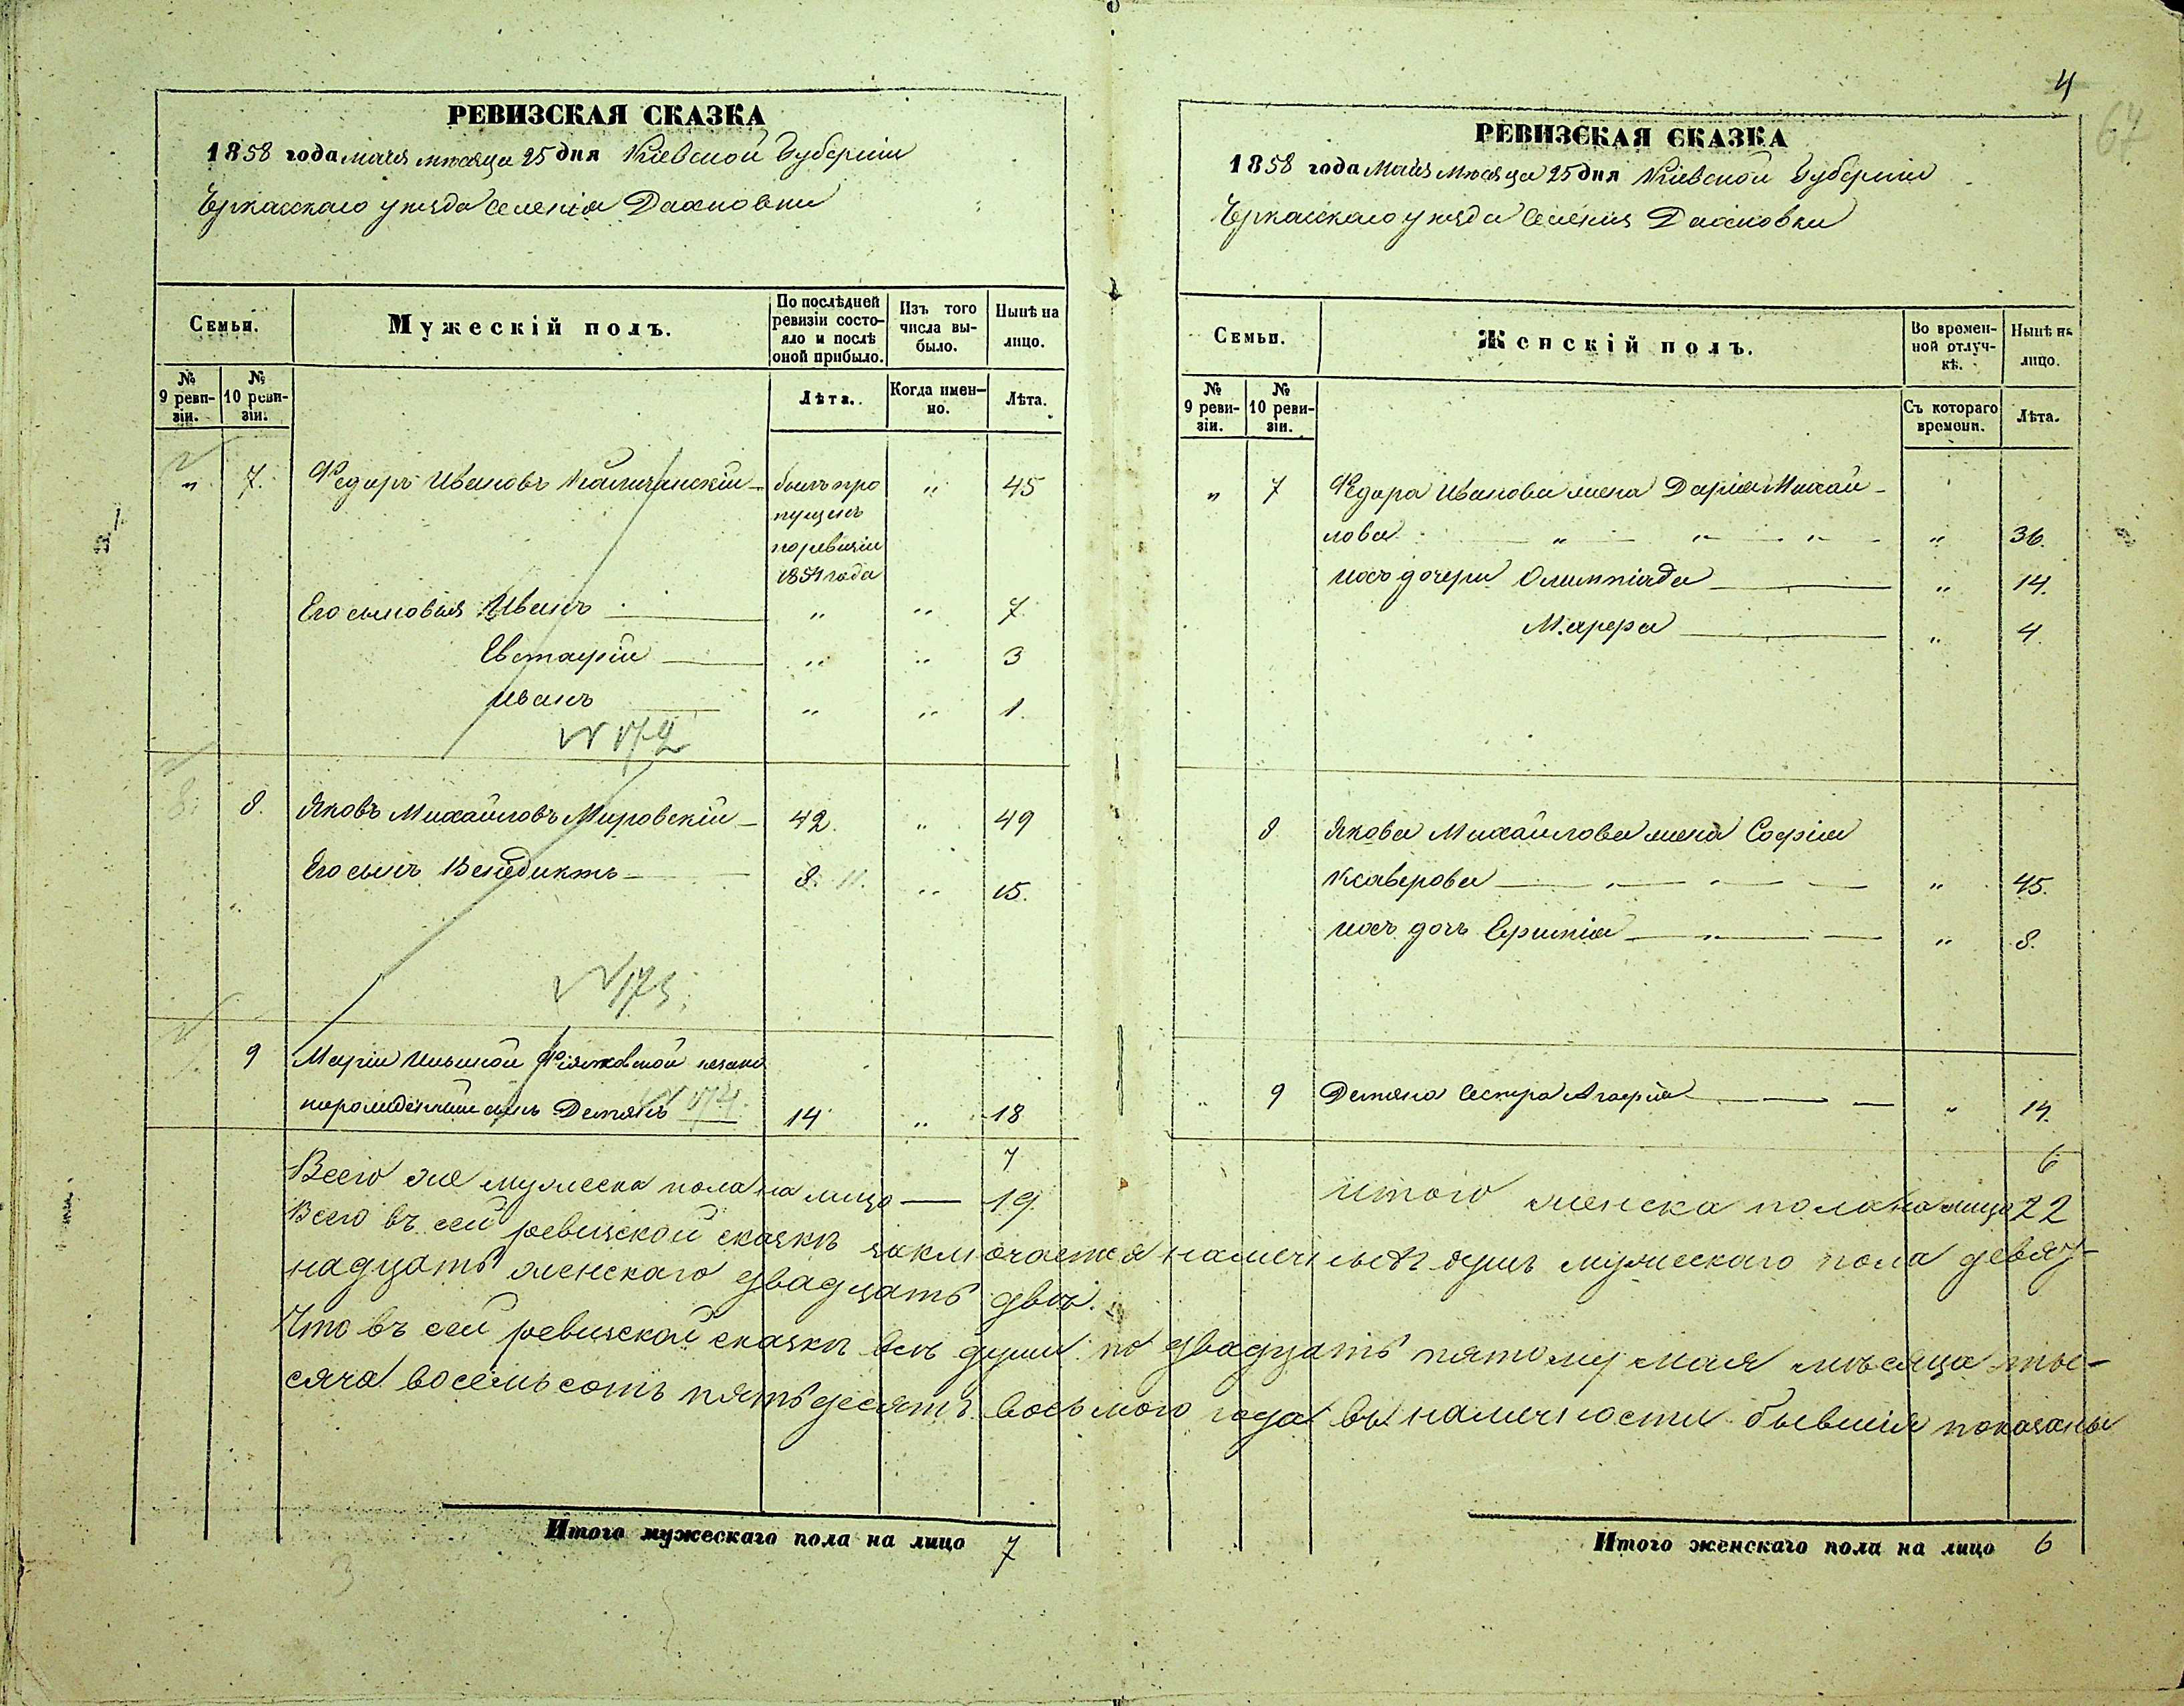 РЕВИЗСКАЯ СКАЗКА
1858 года мая мѣсяца 25 дня Кіевской Губерніи
Черкасскаго уѣзда Селенія Дахновки
Семьи.
Мужескій полъ.
По послѣдней ревизіи состояло и послѣ оной прибыло.
Изъ того числа вы-было.
Нынѣ на лицо.
№ 9 реви-зіи.
№ 10 реви-зіи.
Лѣта.
Когда имен-но.
Лѣта.
„ 7. Федоръ Ивановъ былъ про „ 45
пущенъ
по ревизіи
1854 года
Его сыновья Иванъ „ „ 7.
Евстафій „ „ 3
Иванъ „ „ 1.
N 172
8. 8. Яковъ Михайловъ Мировскій 42. „ 49
Его сынъ Венедиктъ 8. 11. „ 15.
N 173
9 Маріи Ильиной незако
норожденный сынъ Демянъ N 174 14 „ 18
7
Всего же мужеска пола на лицо — 19.
4
64
РЕВИЗСКАЯ СКАЗКА
1858 года Мая Мѣсяца 25 дня Кіевской Губерніи
Черкасскаго уѣзда Селенія Дахновки
Семьи.
Женскій полъ.
Во времен-ной отлуч-кѣ.
Нынѣ на лицо.
№ 9 реви-зіи.
№ 10 реви-зіи.
Съ котораго времени.
Лѣта.
„ 7 Федора Иванова жена Дарія Михай-
лова „ „ „ „ 36.
ихъ дочери Олимпіада „ 14.
Марфа „ 4.
8 Якова Михайлова жена Софія
Ксаверова „ 45.
ихъ дочь „ 8.
„ 9 Демяна Сестра Агафія „ 14.
6
Итого женска пола на лицо 22
Всего въ сей ревизской сказкѣ заключается наличныхъ душъ мужескаго пола девят-
надцать женскаго двадцать двѣ.
Что въ сей ревизской сказкѣ всѣ души по двадцать пятому мая мѣсяца ты-
сяча восемьсотъ пятьдесятъ восьмого года въ наличности бывшія показаны
Итого мужескаго пола на лицо 7
Итого женскаго пола на лицо 6
3